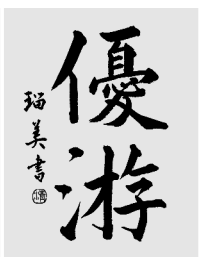 優游
瑠美書